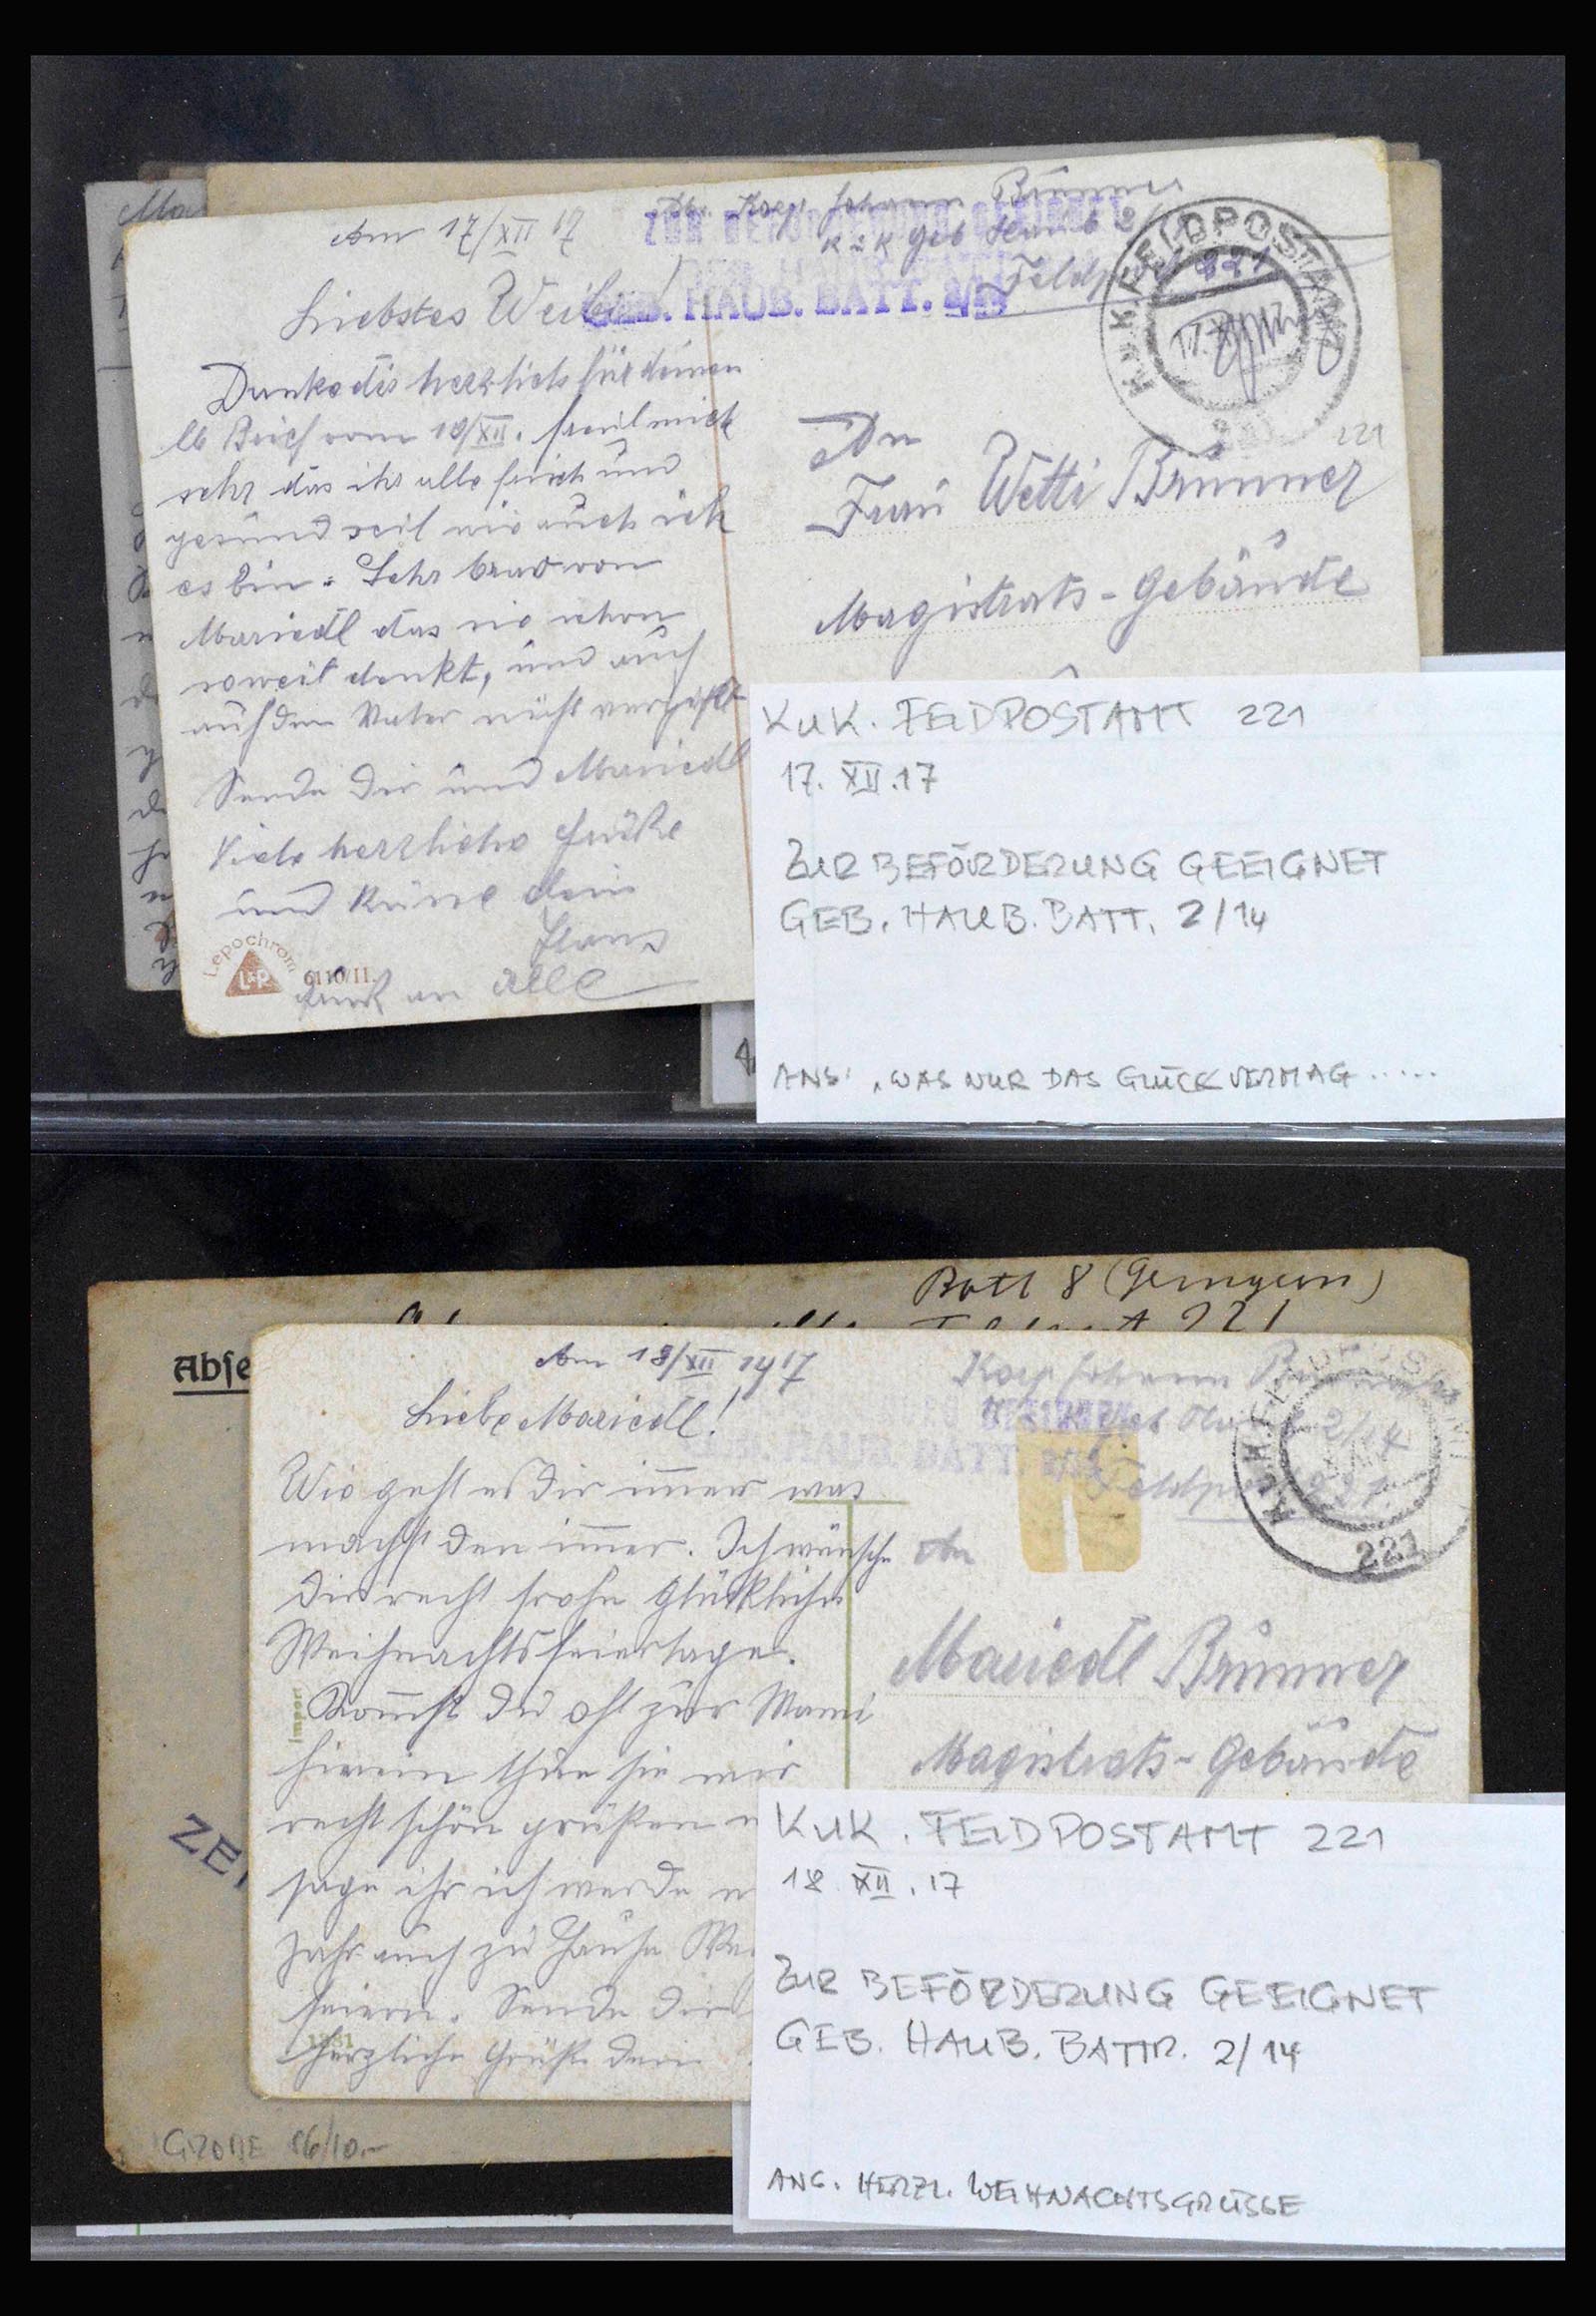 Am 17/XII 17
Liebstes Weiberl!
Danke dir herzlich für deinen
lb Brief vom 10/XII. freut mich
sehr das ihr alle frisch und
gesund seit wie auch ich
es bin. Sehr brav von
Mariedl das sie schon
soweit denkt, und auch
auf den Vater nicht vergißt
Sende dir und Mariedl
Viele herzliche Grüße
und Küsse dein
Hans
Gruß an alle
Lepochrom
L&P
6110/II.
Korp Johann Brunner
K u K Geb Haub 2/
Feldpost 221
ZUR BEFÖRDERUNG GEEIGNET
GEB. HAUB. BATT. 2/14
K.u.K. FELDPOSTAMT
17. XII. 17
221
221
An
Frau Wetti Brunner
Magistrats-Gebäude
KUK. FELDPOSTAMT 221
17. XII.17
ZUR BEFÖRDERUNG GEEIGNET
GEB. HAUB. BATT. 2/14
ANS: „WAS NUR DAS GLÜCK VERMAG.....
Batt 8 (Gemgem)
221
Abse
ZEN
GROßE 16/10.-
Am 18/XII 1917
Liebe Mariedl!
Wie geht es dir immer was
machst den immer. Ich wünsche
dir recht frohe glückliche
Weihnachtsfeiertage.
Kommst du oft zur Mami
hinein thue sie mir
recht schön grüßen
sage ihr ich werde
Jahr auch zu Hause
feiern. Sende dir
herzliche Grüße dein
Import
1381
Korp Johann Brunner
K u K Geb Haub 2/14
Feldpost 221.
GEEIGNET
HAUB. BATT. 2/14
K.u.K. FELDPOSTAMT
221
An
Mariedl Brunner
Magistrats-Gebäude
KUK. FELDPOSTAMT 221
18 XII. 17
ZUR BEFÖRDERUNG GEEIGNET
GEB. HAUB. BATTR. 2/14
ANS. HERZL. WEIHNACHTSGRÜSSE